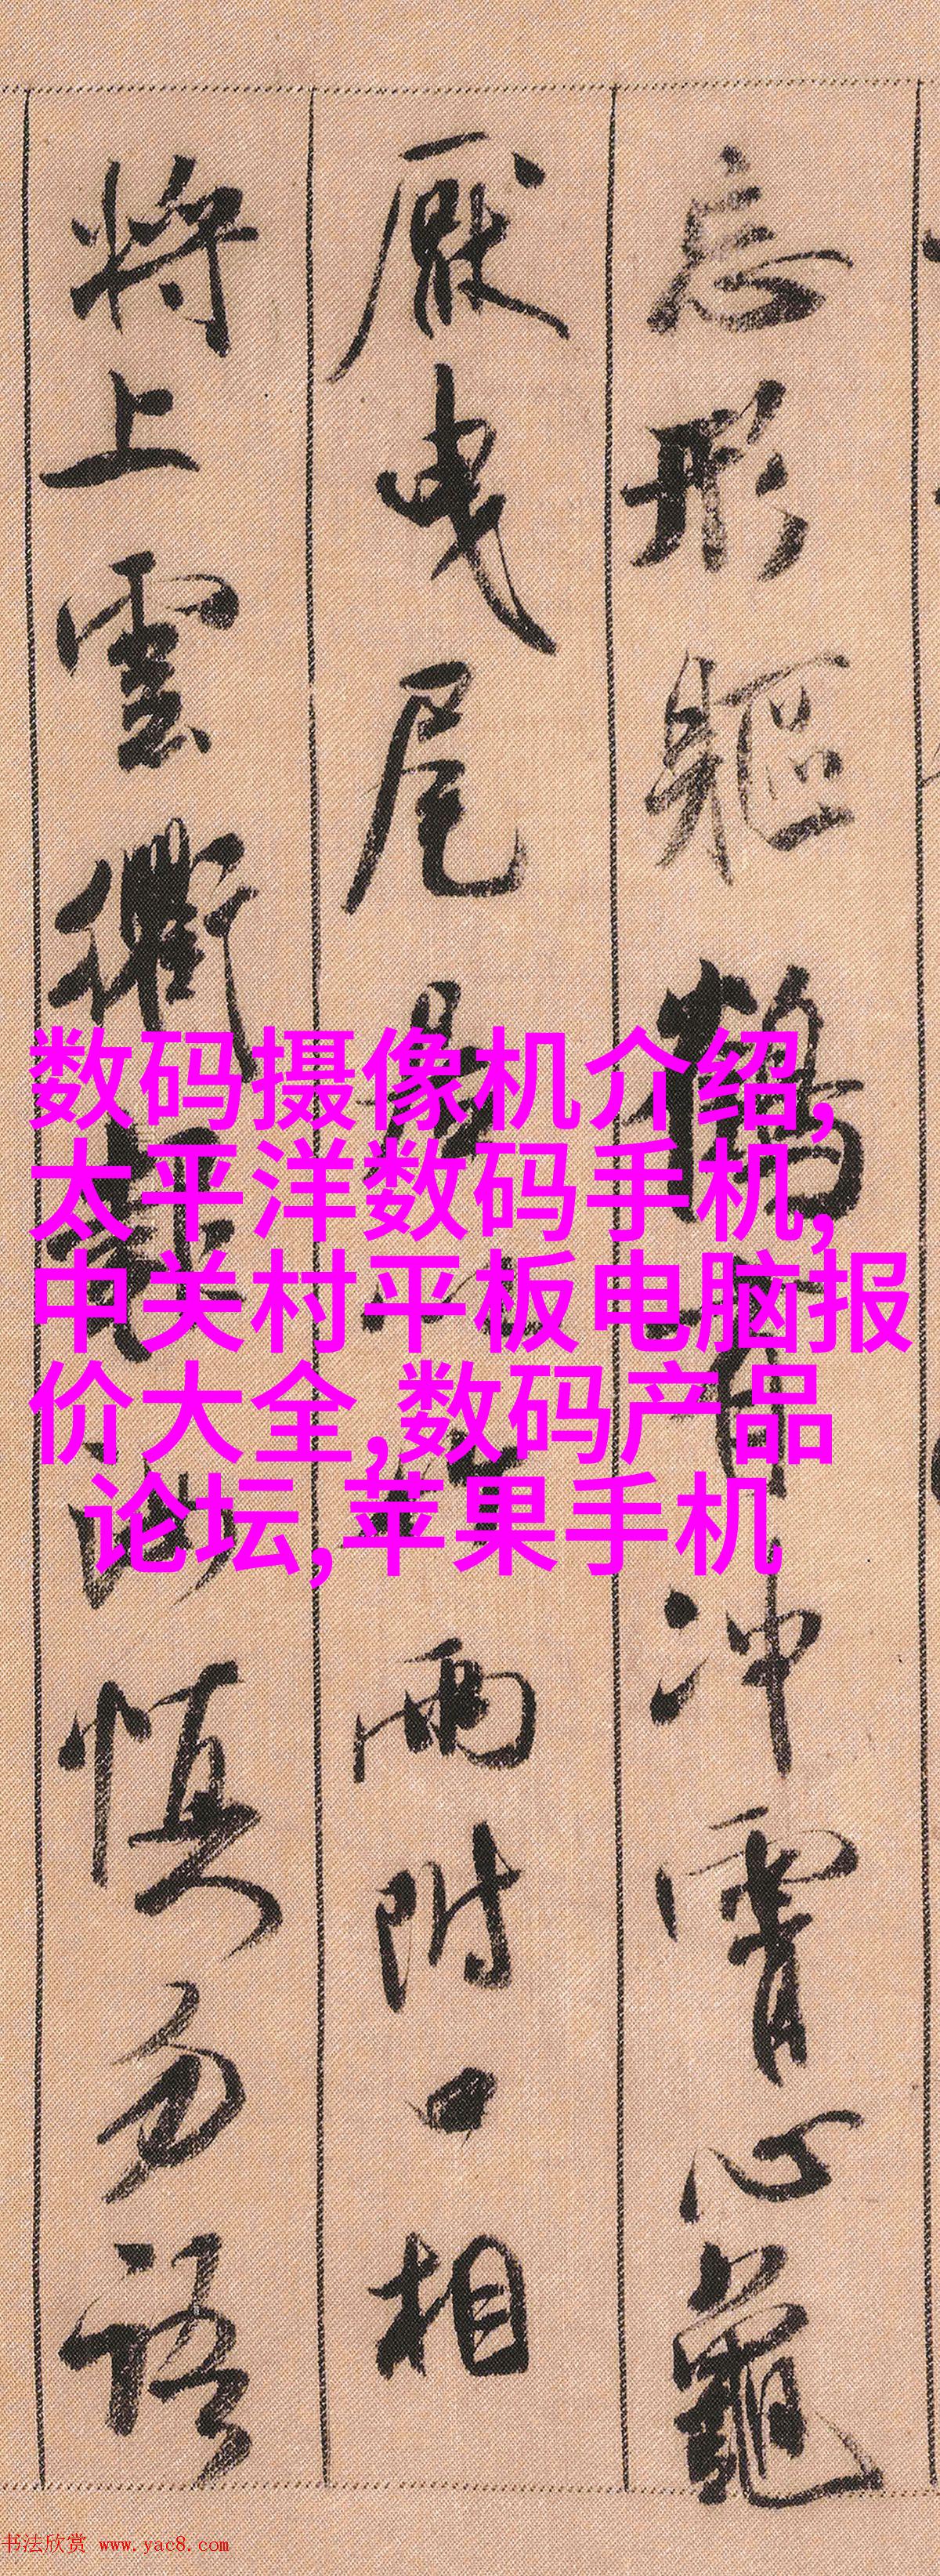 忘形軀鶴有沖霄心龜
厭曳尾居以竹兩附口相
將上雲衢報汝慎勿語
数码摄像机介绍,
太平洋数码手机,
中关村平板电脑报
价大全,数码产品
论坛,苹果手机
书法欣赏 www.yac8.com